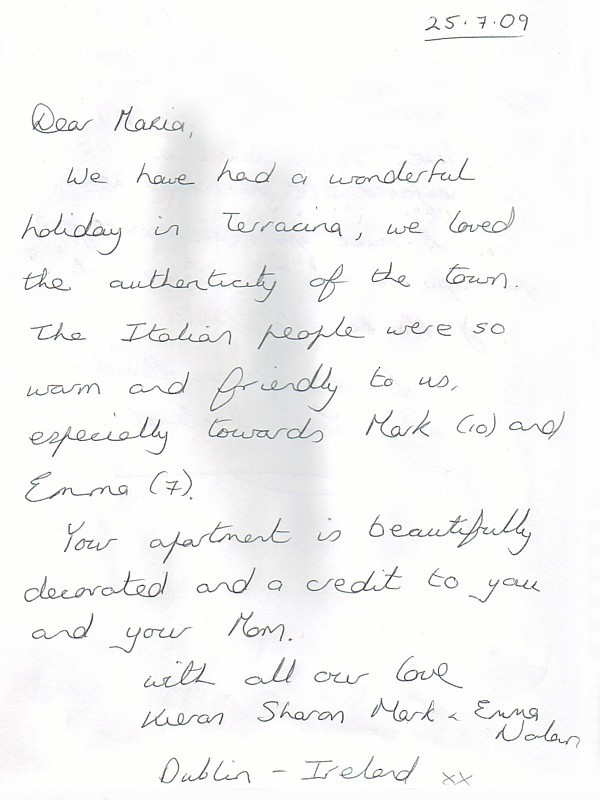 25.7.09
Dear Maria,
We have had a wonderful
holiday in Terracina, we loved
the authenticity of the town.
The Italian people were so
warm and friendly to us,
especially towards Mark (10) and
Emma (7).
Your apartment is beautifully
decorated and a credit to you
and your Mom.
with all our love
Kieran Sharon Mark & Emma
Nolan
Dublin - Ireland xx